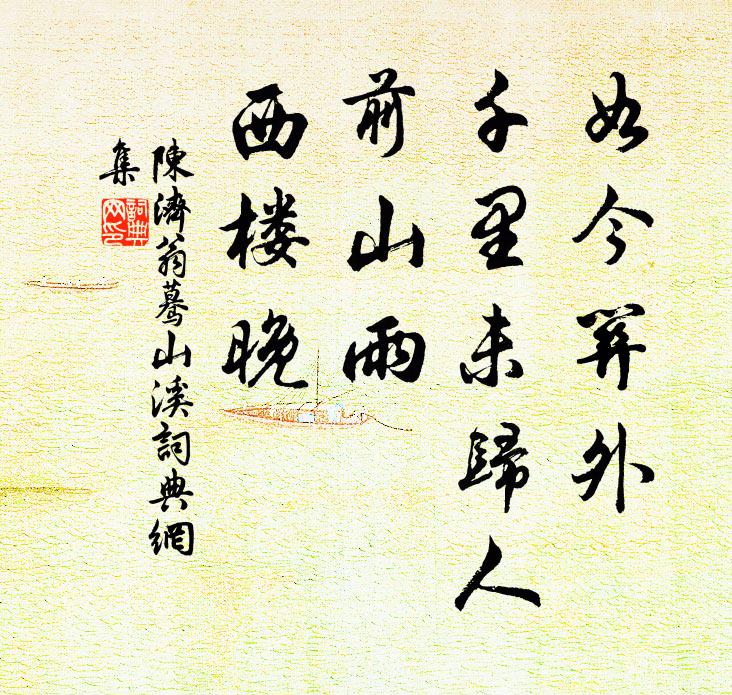 如今關外
千里未歸人
前山雨
西楼晚
陳濟翁蓦山溪詞典網
集
詞典
网印